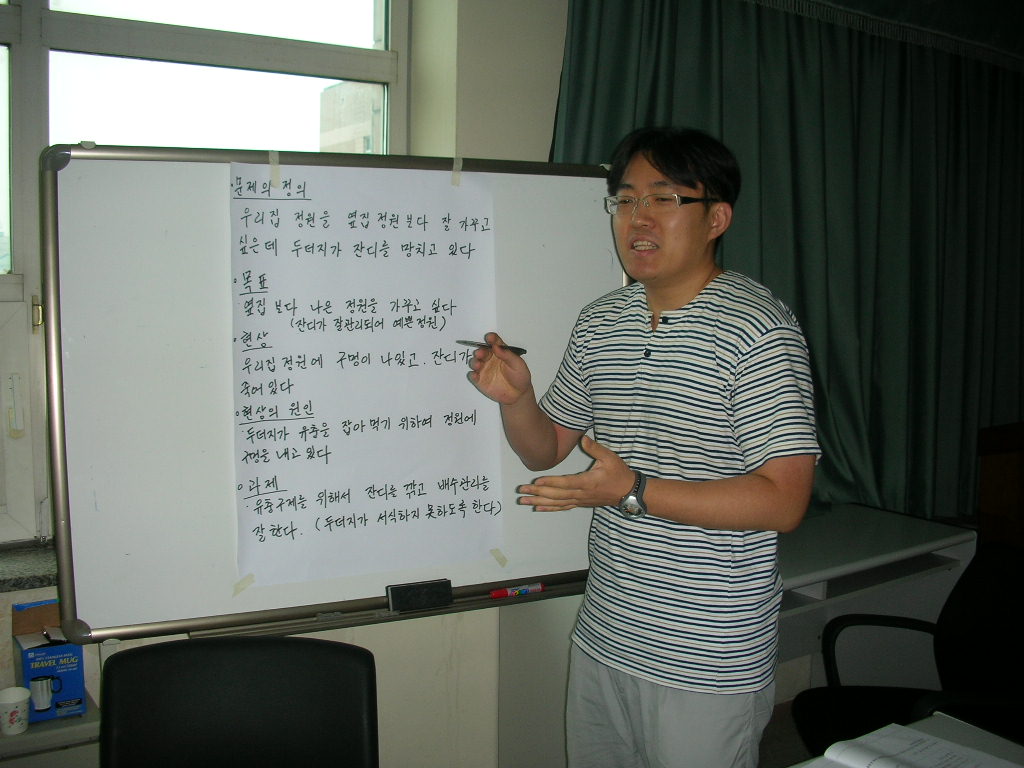 ·문제의 정의
우리집 정원을 옆집 정원보다 잘 가꾸고
싶은데 두더지가 잔디를 망치고 있다
·목표
옆집보다 나은 정원을 가꾸고 싶다
(잔디가 잘관리되어 예쁜정원)
·현상
우리집 정원에 구멍이 나있고. 잔디가
죽어있다
·현상의 원인
·두더지가 유충을 잡아먹기 위하여 정원에
구멍을 내고 있다
·과제
·유충구제를 위해서 잔디를 깎고 배수관리를
잘한다. (두더지가 서식하지 못하도록 한다)
TRAVEL MUG